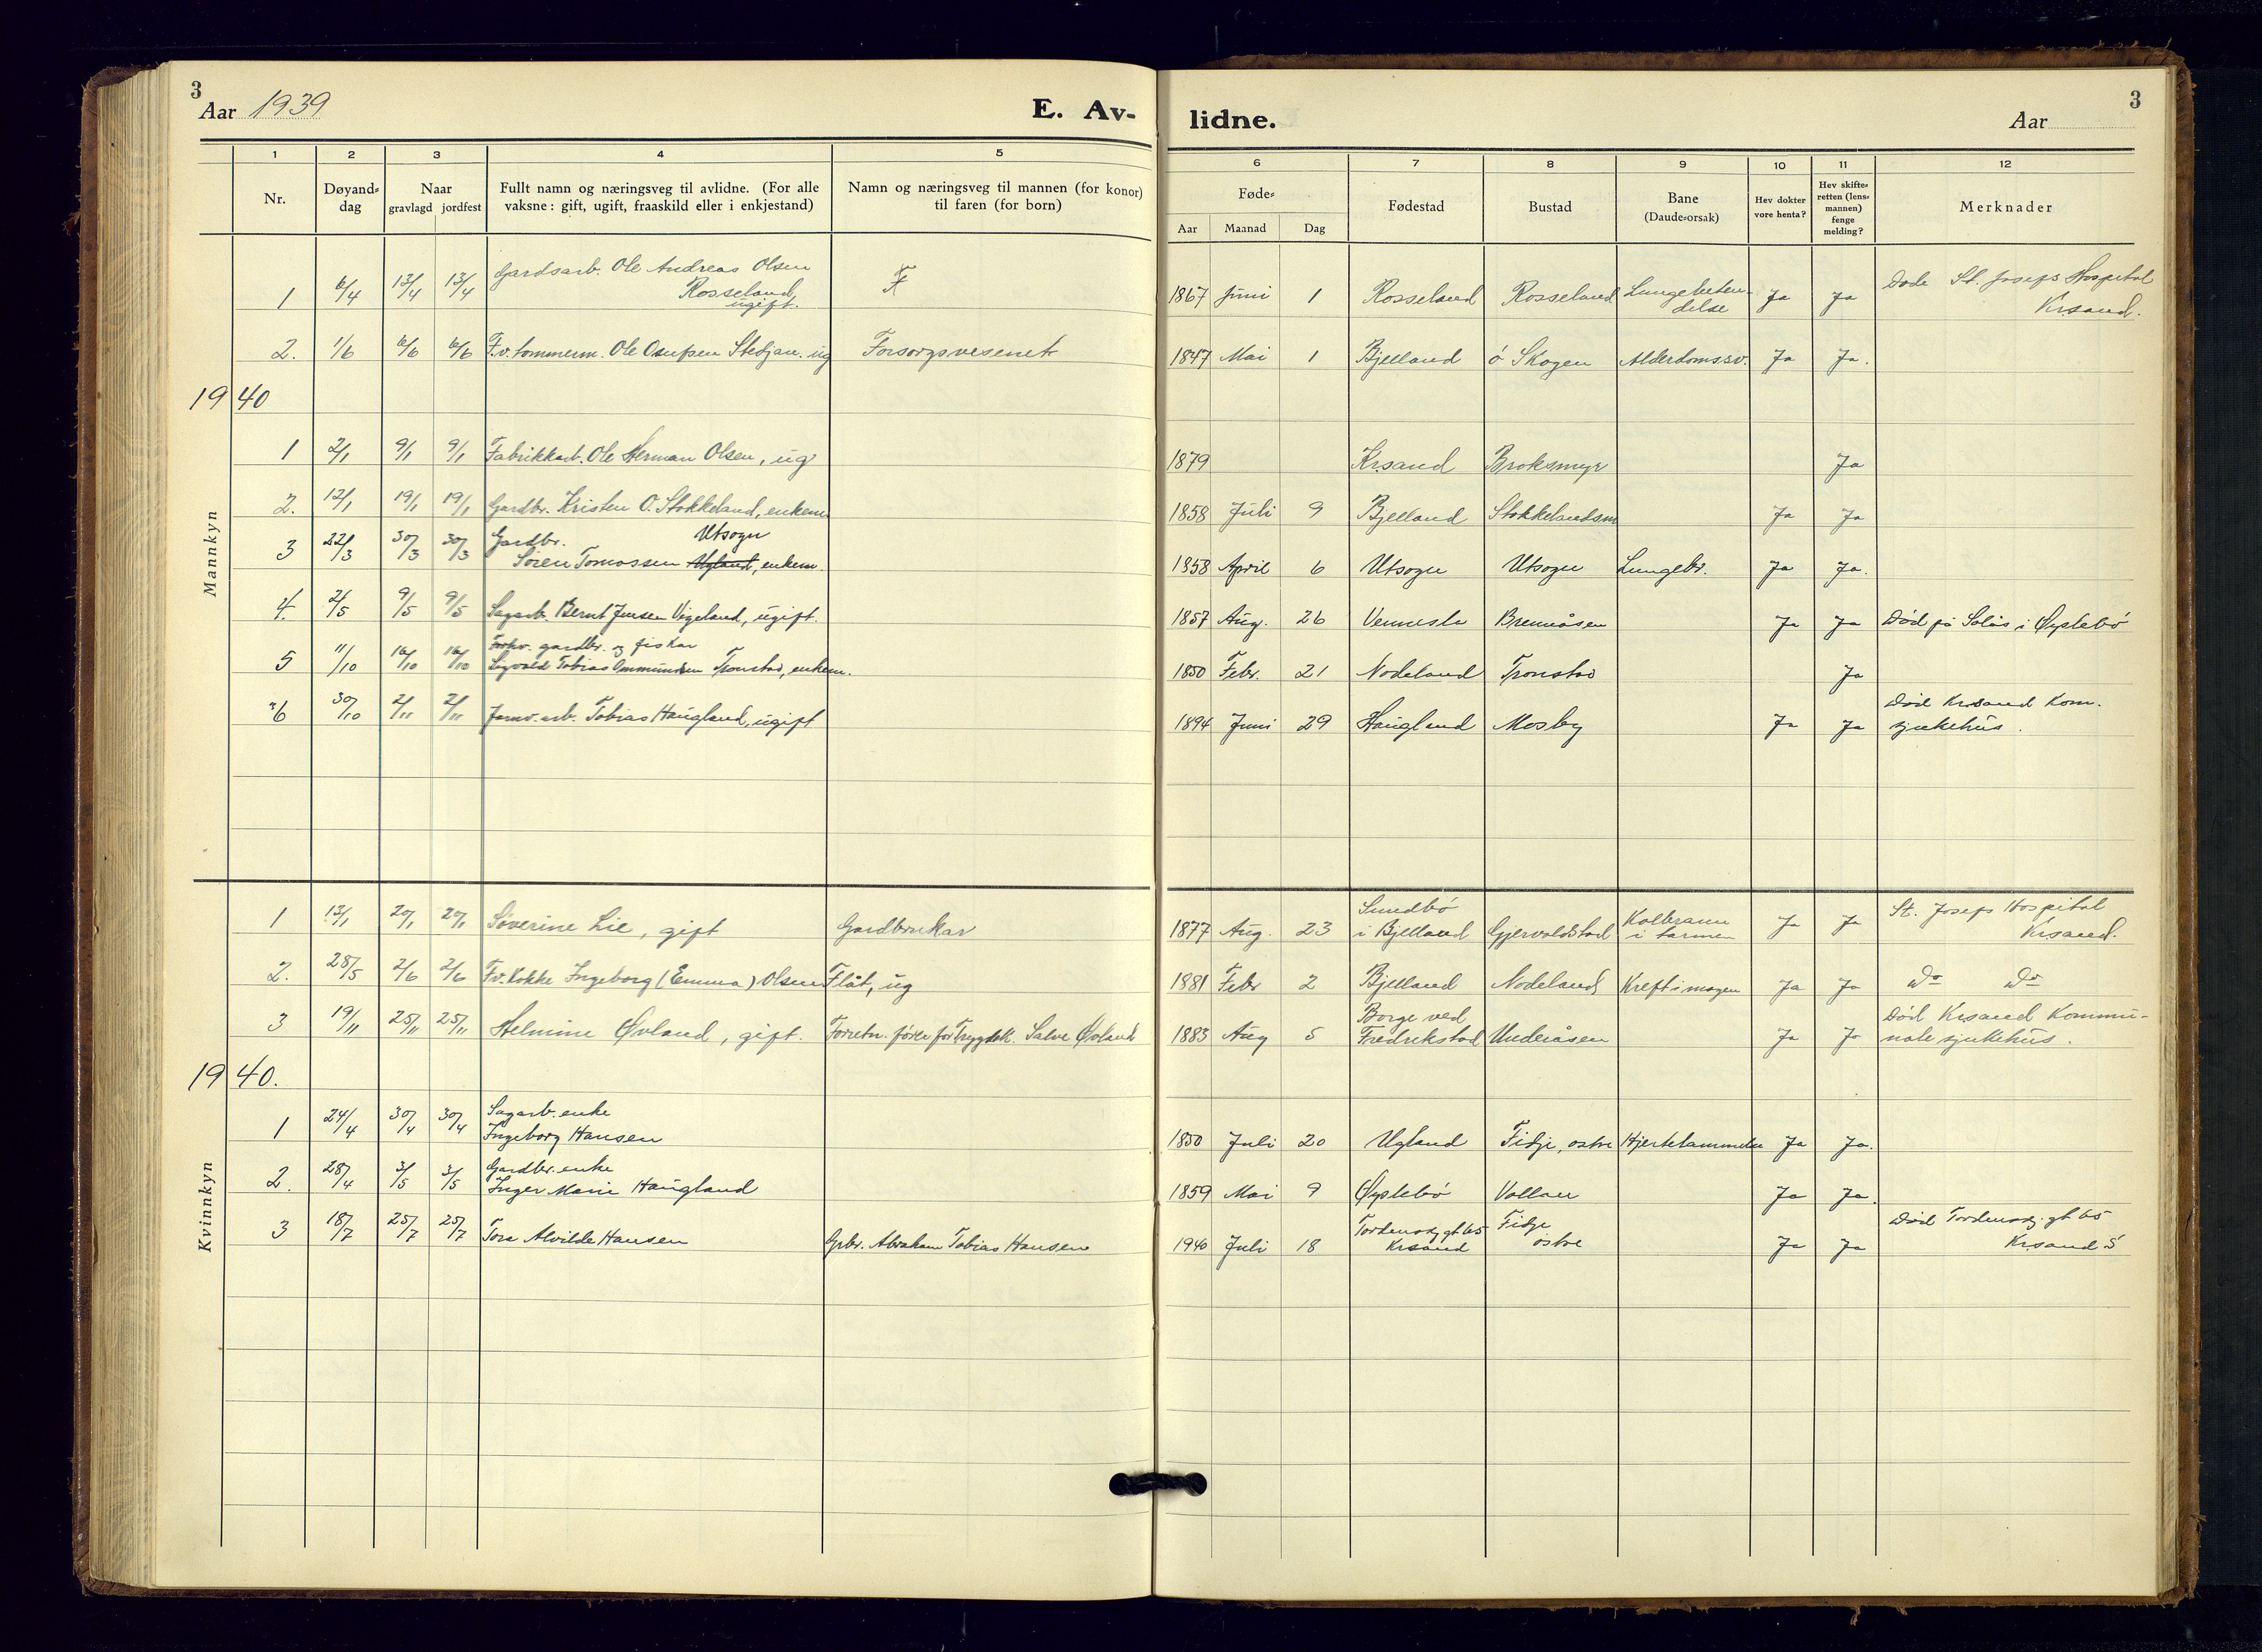 3
Aar 1939
E. Av-
lidne.
Aar
3
1 2 3 4 5
6 7 8 9 10 11 12
Nr.
Døyand-
dag
Naar
gravlagd jordfest
Fullt namn og næringsveg til avlidne. (For alle
vaksne: gift, ugift, fraaskild eller i enkjestand)
Namn og næringsveg til mannen (for konor)
til faren (for born)
Føde-
Aar Maanad Dag
Fødestad
Bustad
Bane
(Daude-orsak)
Hev dokter
vore henta?
Hev skifte-
retten (lens-
mannen)
fenge
melding?
Merknader
Mannkyn
1 6/4 13/4 13/4 Gardsarb. Ole Andreas Olsen
Rosseland
ugift.
1867 Juni 1 Rosseland Rosseland Ja Ja Døde St. Josefs Hospital
Krsand.
2. 1/6 6/6 6/6 F.v. tømmerm. Ole Osufsen Stedjan. ug Forsorgsvesenet 1847 Mai 1 Bjelland ø Skogen Alderdomssv. Ja Ja.
1940
1 2/1 9/1 9/1 Fabrikkarb. Ole Herman Olsen, ug 1879 Krsand Broksmyr Ja
2. 12/1 19/1 19/1 Gardbr. Kristen O. Stokkeland, enkem 1858 Juli 9 Bjelland Stokkelandsm Ja Ja
3 22/3 30/3 30/3 Gardbr. Utsogn
Søren Tomassen Ugland, enkem. 1858 April 6 Utsogn Utsogn Lungebr. Ja Ja.
4. 2/5 9/5 9/5 Sagarb. Bernt Jensen Vigeland, ugift. 1857 Aug. 26 Vennesla Brennåsen Ja Ja Død på Solås i Øyslebø
5 11/10 16/10 16/10 Forhv. gardbr. og fiskar
Sigvald Tobias Ommundsen Tronstad, enkem. 1850 Febr. 21 Nodeland Tronstad Ja
6 30/10 2/11 2/11 Jarnv.arb. Tobias Haugland, ugift 1894 Juni 29 Haugland Mosby Ja Ja Død Krsand Kom.
sjukehus.
Kvinnkyn
1 13/1 20/1 20/1 Søverine Lie, gift Gardbrukar 1877 Aug. 23 Sundbø
i Bjelland Gjervoldstad Kolbrann
i tarmen Ja Ja St. Josefs Hospital
Krsand.
2. 28/5 2/6 2/6 Fv. Kokke Ingeborg (Emma) Olsen Flåt, ug 1881 Febr 2 Bjelland Nodeland Kreft i magen Ja Ja Do Do
3 19/11 25/11 25/11 Helmine Øvland, gift. Forretn. fører for Trygdek. Salve Øvland 1883 Aug 5 Borge ved
Fredrikstad Underåsen Ja Ja Død Krsand Kommu-
nale sjukehus.
1940.
1 24/4 30/4 30/4 Sagarb. enke
Ingeborg Hansen 1850 Juli 20 Ugland Fidje, østre Hjertelammelse Ja Ja.
2. 28/4 3/5 3/5 Gardbr. enke
Inger Marie Haugland 1859 Mai 9 Øyslebø Vollan Ja Ja.
3 18/7 25/7 25/7 Tora Alvilde Hansen Grbr. Abraham Tobias Hansen 1940 Juli 18 Tordenskj.gt 65
Krsand Fidje
østre Ja Ja Død Tordenskj. gt 65
Krsand S